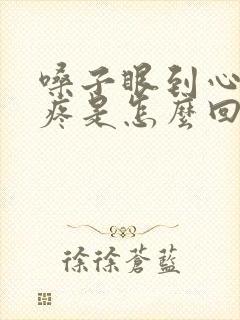 嗓子眼到心
疼是怎麼回
徐徐蒼藍